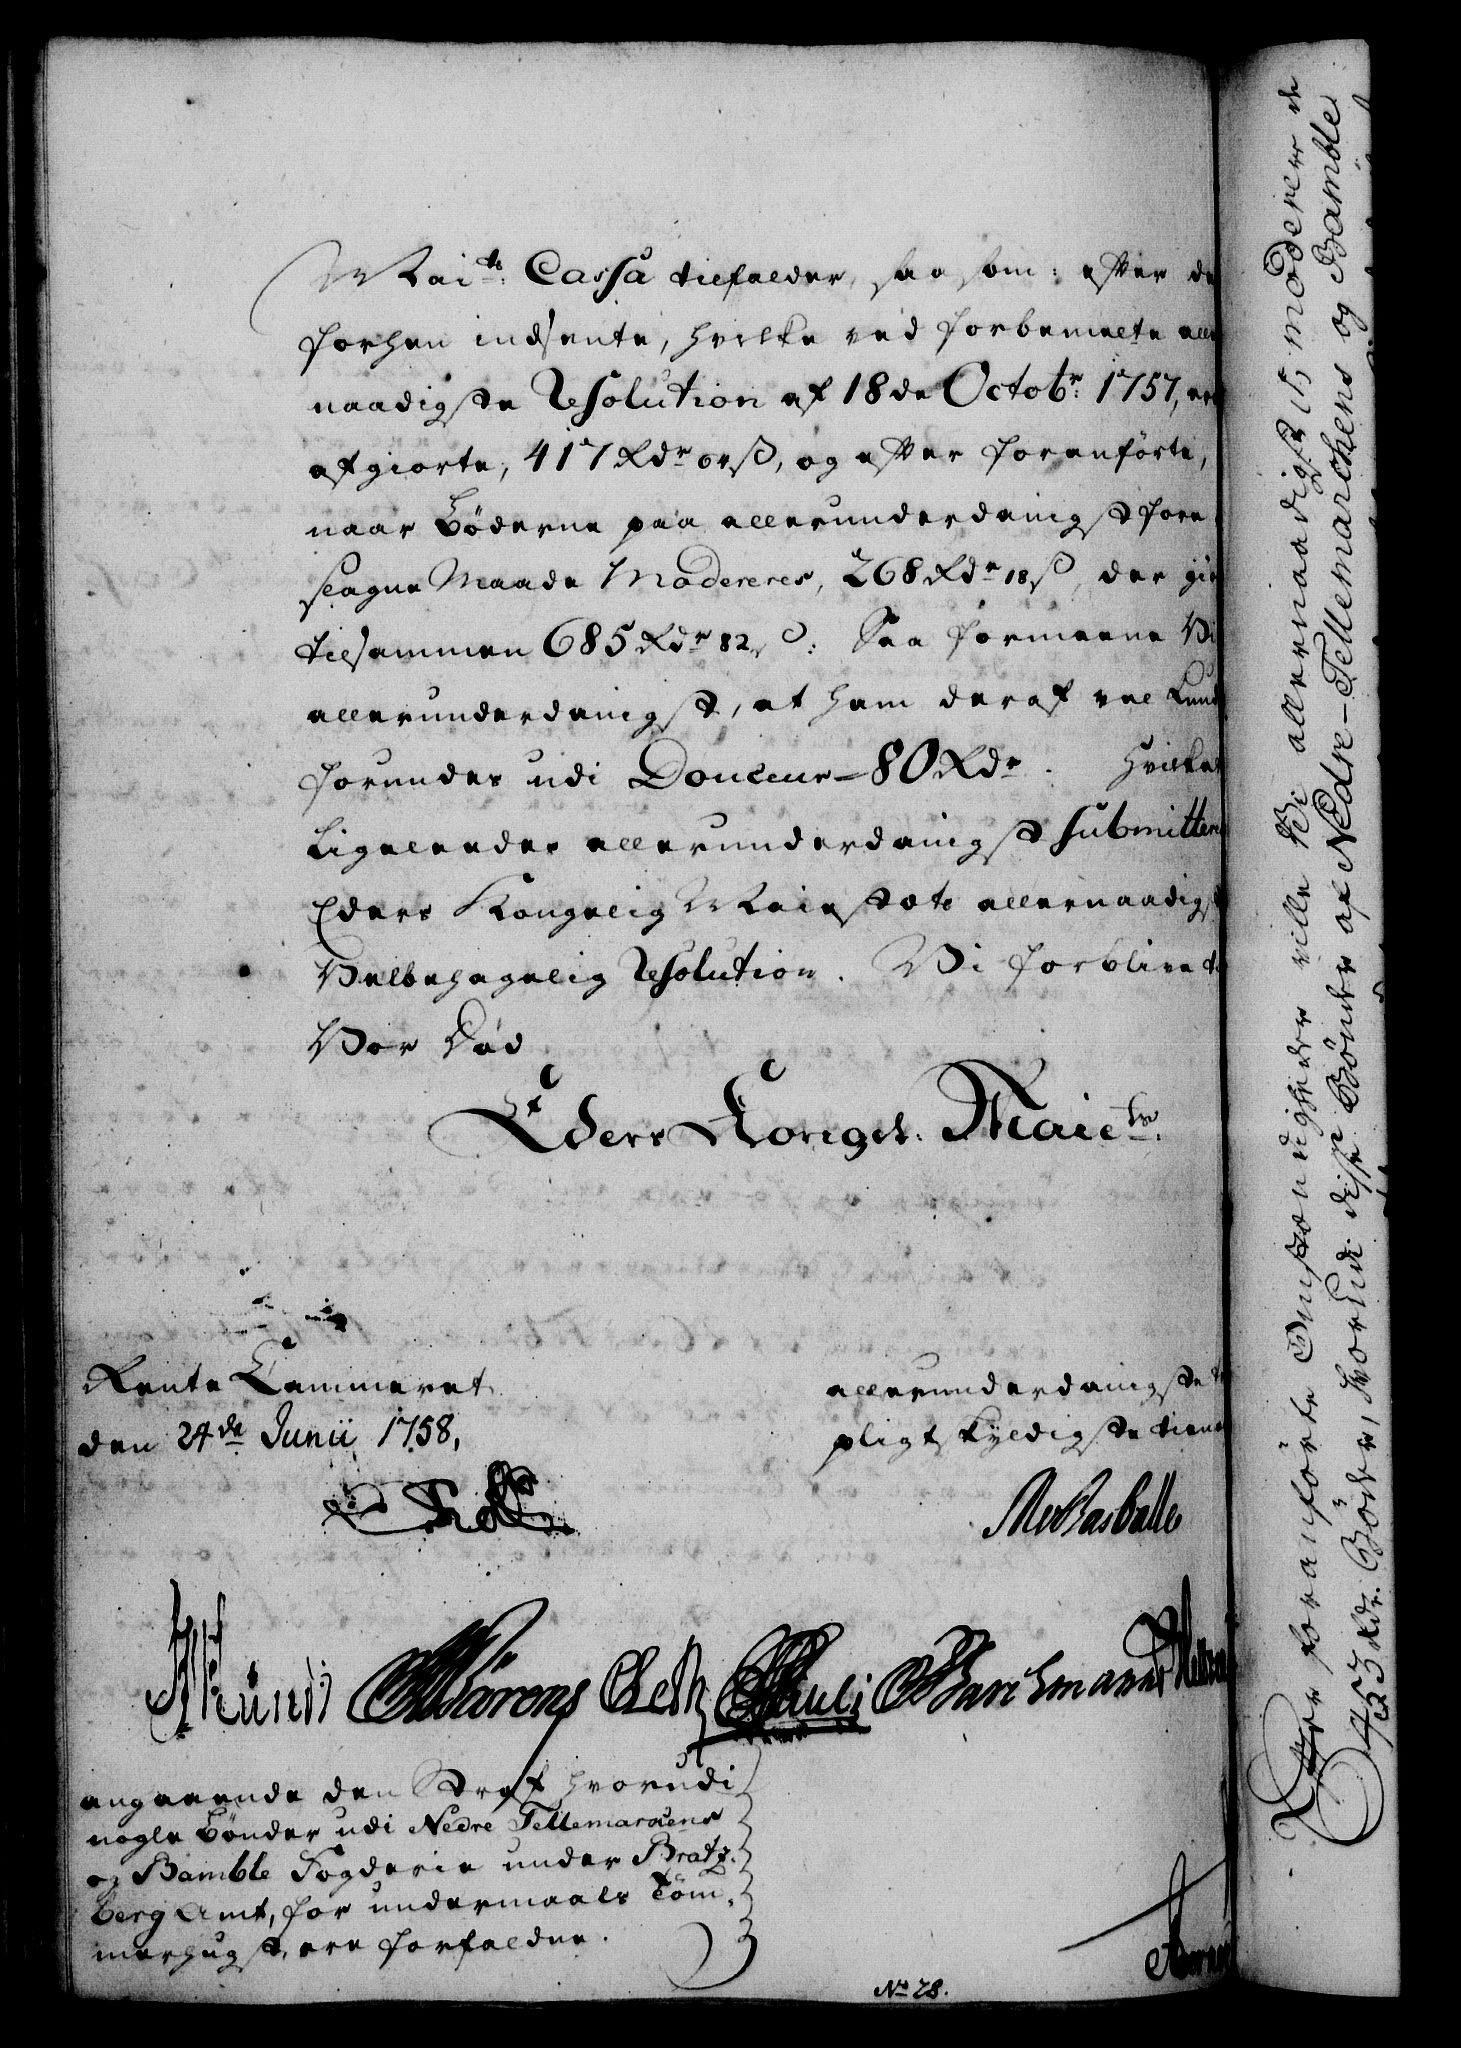 Mai:ts Cassa tilfalder, saasom: efter de
forhen indsente, hvilke ved forbemelte aller
naadigste Resolution af 18de Octobr: 1757, ere
afgiorte, 417 Rdr 64 ß, og efter foranförte,
naar Böderne paa allerunderdanigst fore
slagne Maade Modereres, 268 Rdr 18 ß, der giør
tilsammen 685 Rdr 82 ß: Saa formeene Vi
allerunderdanigst, at ham deraf vel kunde
forundes udi Douceur 80 Rdr. Hvilket
ligeledes allerunderdanigst submitteres
Eders Kongelig Maiestæts allernaadigst
Velbehagelig Resolution. Vi forblive til
Vor Död
Eders Kongel: Maiets:
Rente Cammeret
den 24de Junii 1758,
allerunderdanigste
pligtskyldigste tiene
angaaende den Straf, hvorudi
nogle Bönder udi Nedre Tellemarchens
og Bamble Fogderie under Bratz-
berg Amt, for undermaals Töm-
merhugst, ere forfaldne.
No 28.
Efter foranförte Omstændigheder ville Vi allernaadigst moderere de
453 Rdr. Böder, hvorudi disse Bönder af Nedre-Tellemarchens og Bamble